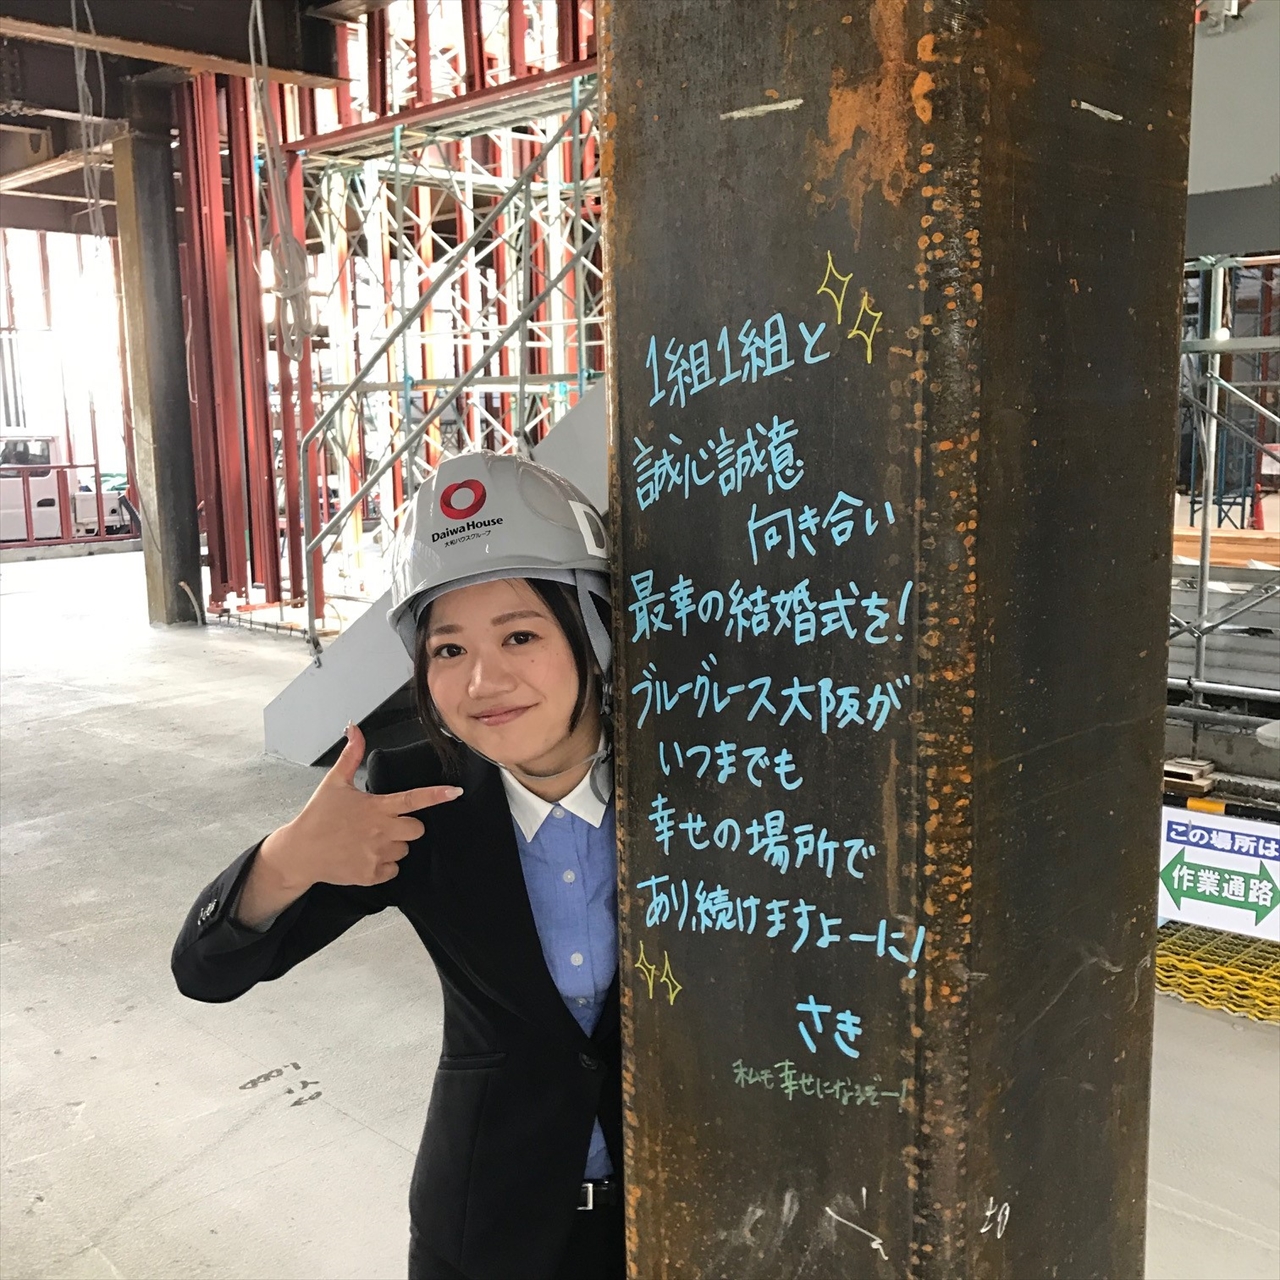 1組1組と
誠心誠意
向き合い
最幸の結婚式を!
ブルーグレース大阪が
いつまでも
幸せの場所で
あり続けますよーに!
さき
私も幸せになるぞー!
Daiwa House
大和ハウスグループ
この場所は
作業通路